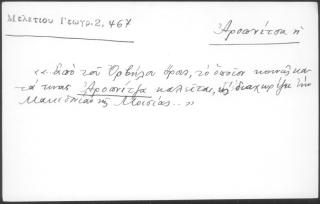 Μελετίου Γεωγρ. 2, 467
Ἀρσανίτσα ἡ
«... ἀπὸ τοῦ Ὀρβήλου ὄρους, τὸ ὁποῖον κοινῶς κα-
τά τινας Ἀρσανίτζα καλεῖται, διαχωρίζει τὴν
Μακεδονίαν τῆς Μοισίας...»